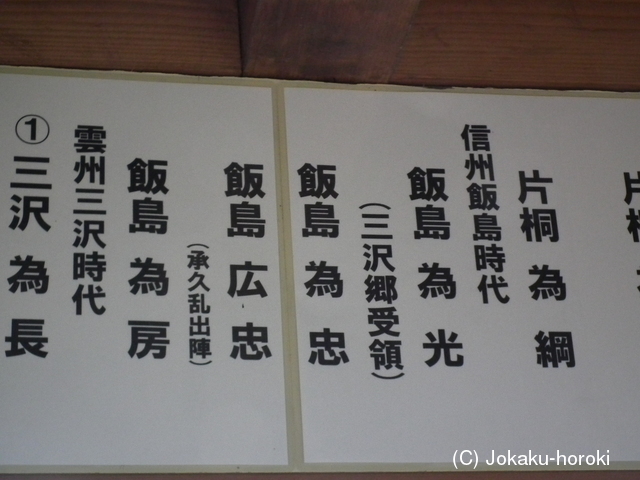 片桐
片桐 為 綱
信州飯島時代
飯島 為 光
(三沢郷受領)
飯島 為 忠
飯島 広 忠
(承久乱出陣)
飯島 為 房
雲州三沢時代
①三沢 為 長
(C) Jokaku-horoki